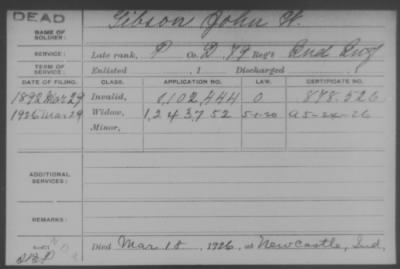 DEAD
NAME OF SOLDIER: Gibson John W.
SERVICE: Late rank, P Co. D 79 Reg't Ind Inf
TERM OF SERVICE: Enlisted , 1 Discharged , 1
DATE OF FILING. CLASS. APPLICATION NO. LAW. CERTIFICATE NO.
1892 Mar 29 Invalid, 1,102,444 O 878.526
1926 Mar 29 Widow, 1,243752 5-1-20 A 5-24-26
Minor,
ADDITIONAL SERVICES:
REMARKS:
Died Mar 18, 1926, at Newcastle, Ind,